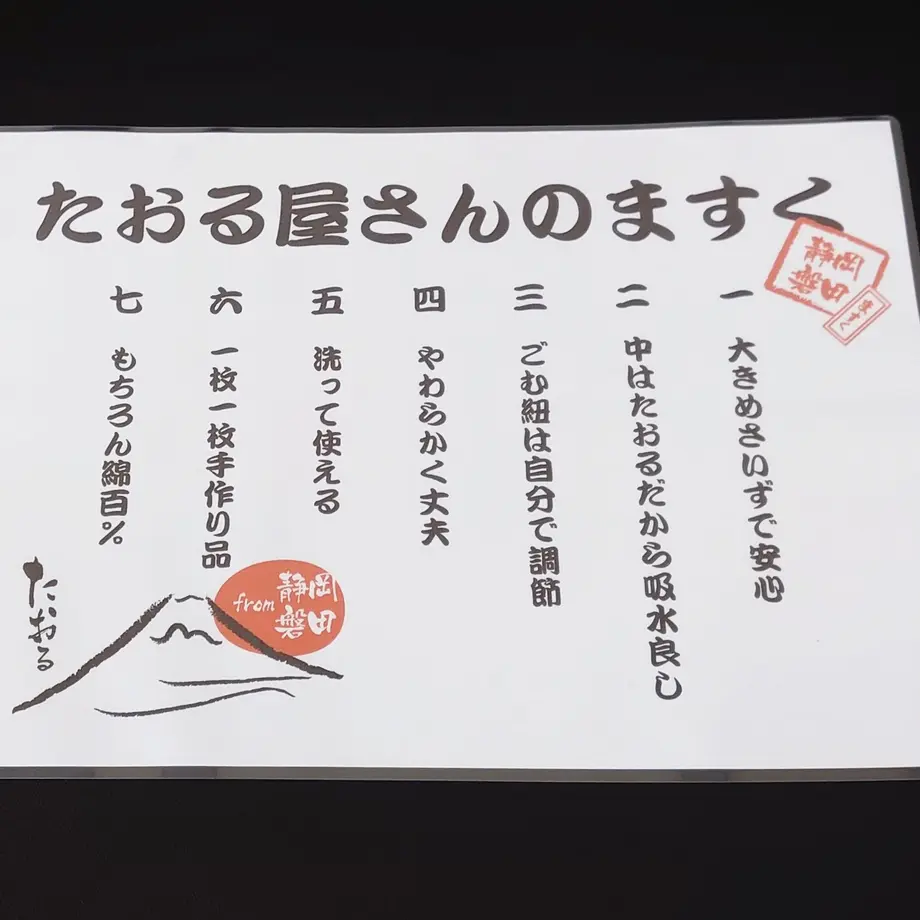 たおる屋さんのますく
一 大きめさいずで安心
二 中はたおるだから吸水良し
三 ごむ紐は自分で調節
四 やわらかく丈夫
五 洗って使える
六 一枚一枚手作り品
七 もちろん綿百%
静岡
磐田
ますく
たおる
from
静岡
磐田